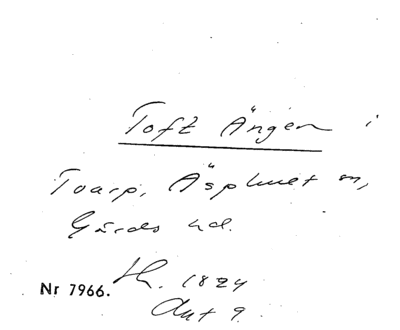 Toft Ängen i
Toarp, Äsphult sn,
Gärds hd.
Nr 7966. Sk. 1824
Akt 9.